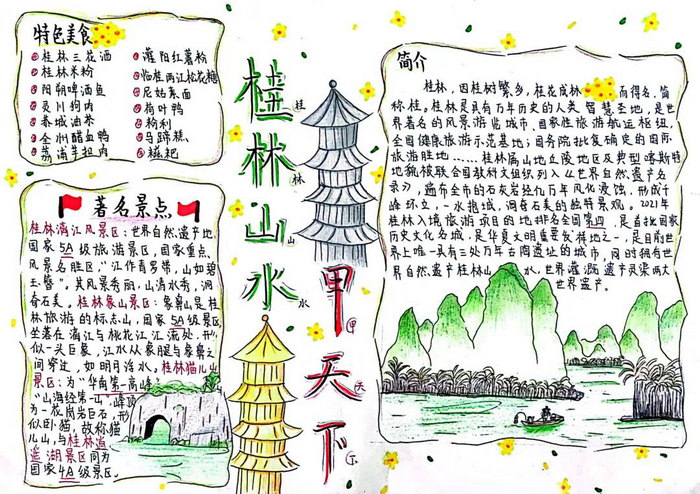 特色美食
桂林三花酒
桂林米粉
阳朔啤酒鱼
灵川狗肉
恭城油茶
全州醋血鸭
荔浦芋扣肉
灌阳红薯粉
临桂两江桃花糯
尼姑素面
荷叶鸭
马蹄糕
糍粑
著名景点
桂林漓江风景区:世界自然遗产地
国家5A级旅游景区,国家重点
风景名胜区,"江作青罗带,山如碧
玉簪"。其风景秀丽,山清水秀,洞
奇石美。桂林象山景区:象鼻山是桂
林旅游的标志山,国家5A级景区,
坐落在漓江与桃花江汇流处,形
似一头巨象,江水从象腿与象鼻之
间穿过,如明月浮水。桂林猫儿山
景区:为"华南第一高峰"
"山海经第一山",峰顶
为一花岗岩巨石,形
似卧猫,故称猫
儿山,与桂林逍
遥湖景区同为
国家4A级景区。
桂林山水
桂
林
山
水
甲天下
甲
天
下
简介
桂林,因桂树繁多,桂花成林而得名,简
称桂。桂林是具有万年历史的人类智慧圣地,是世
界著名的风景游览城市、国家性旅游航运枢纽,
全国健康旅游示范基地;国务院批复确定的国际
旅游胜地……桂林属山地丘陵地区及典型喀斯特
地貌被联合国教科文组织列入《世界自然遗产名
录》,遍布全市的石灰岩经亿万年风化浸蚀,形成千
峰环立,一水抱城,洞奇石美的独特景观。2021年
桂林入境旅游项目的地排名全国第四,是首批国家
历史文化名城,是华夏文明重要发祥地之一,是目前世
界上唯一具有三处万年古陶遗址的城市,同时拥有世
界自然遗产桂林山水,世界灌溉遗产灵渠两大
世界遗产。